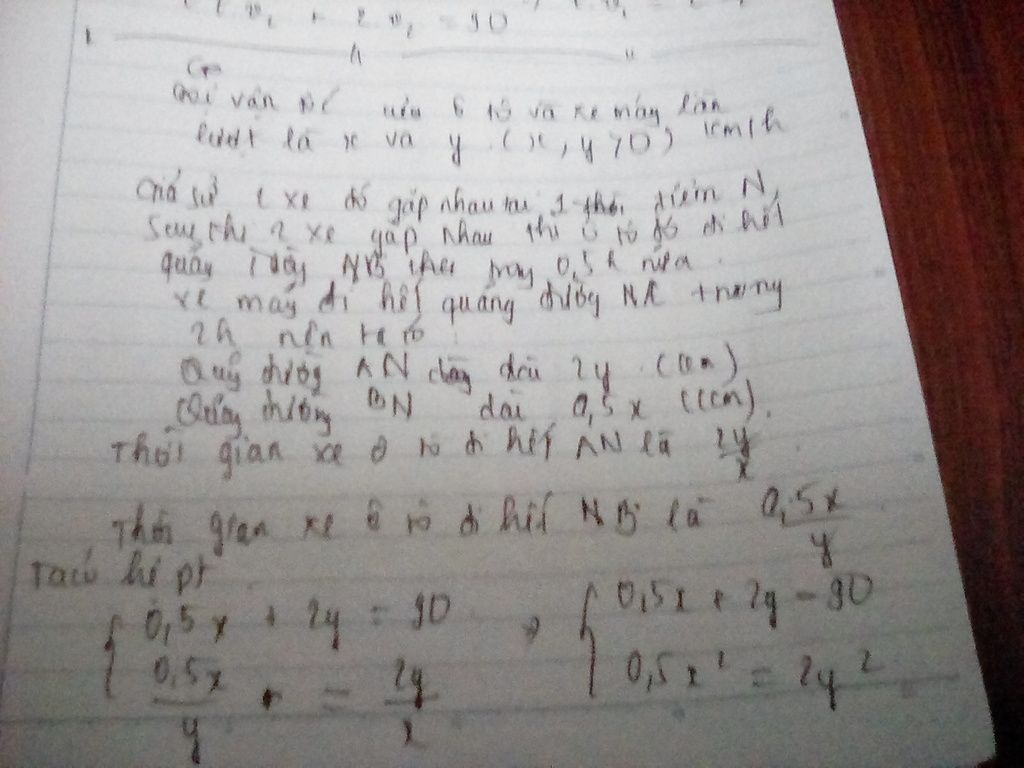 v₂ + 2 v₂ = 90
Gọi vận tốc của ô tô và xe máy lần
lượt là x và y (x, y > 0) km/h
Giả sử 2 xe đó gặp nhau tại 1 thời điểm N,
Sau khi 2 xe gặp nhau thì ô tô đó đi hết
quãng đường NB trong 0,5h nữa.
xe máy đi hết quãng đường NA trong
2h nên ta có
Quãng đường AN dài 2y (km)
Quãng đường BN dài 0,5x (km).
Thời gian xe ô tô đi hết AN là 2y/x
Thời gian xe ô tô đi hết NB là 0,5x/y
Ta có hệ pt
{ 0,5x + 2y = 90 => { 0,5x + 2y = 90
0,5x/y = 2y/x 0,5x² = 2y²